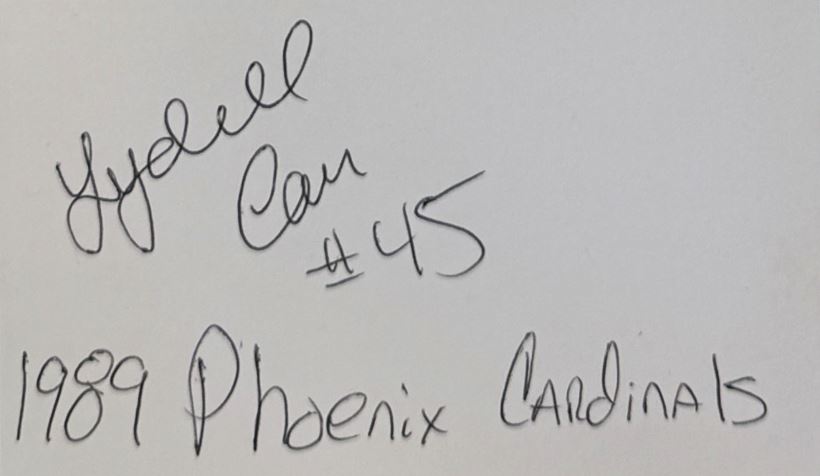 Lydell
Carr
#45
1989 Phoenix Cardinals